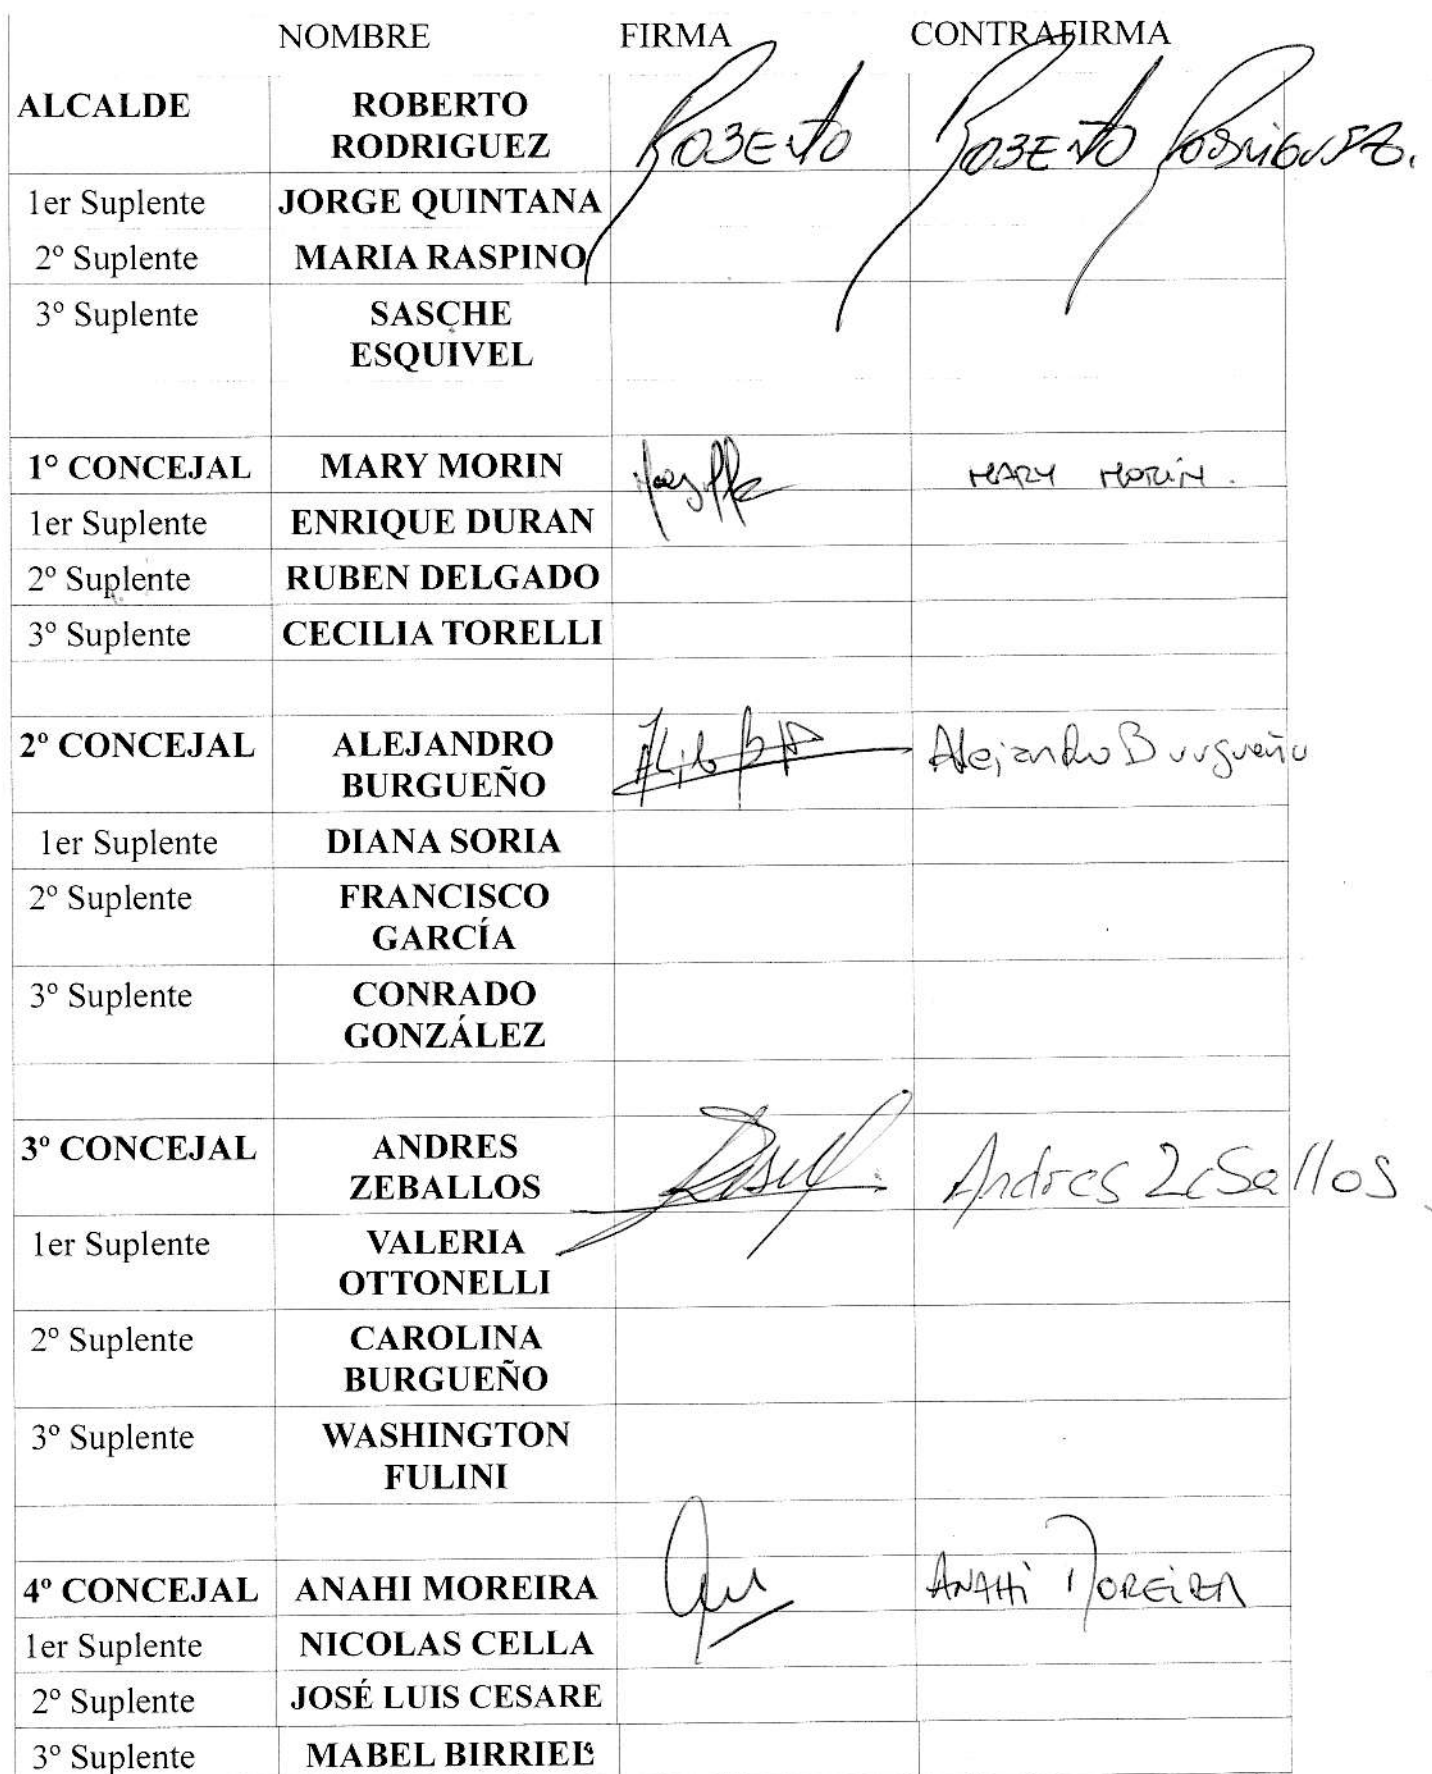 NOMBRE FIRMA CONTRAFIRMA
ALCALDE ROBERTO Roberto Roberto Rodriguez.
RODRIGUEZ
1er Suplente JORGE QUINTANA
2º Suplente MARIA RASPINO
3º Suplente SASCHE
ESQUIVEL
1º CONCEJAL MARY MORIN MARY MORIN.
1er Suplente ENRIQUE DURAN
2º Suplente RUBEN DELGADO
3º Suplente CECILIA TORELLI
2º CONCEJAL ALEJANDRO Alejandro Burgueño
BURGUEÑO
1er Suplente DIANA SORIA
2º Suplente FRANCISCO
GARCÍA
3º Suplente CONRADO
GONZÁLEZ
3º CONCEJAL ANDRES Andres Zeballos
ZEBALLOS
1er Suplente VALERIA
OTTONELLI
2º Suplente CAROLINA
BURGUEÑO
3º Suplente WASHINGTON
FULINI
4º CONCEJAL ANAHI MOREIRA ANAHi MOREiRA
1er Suplente NICOLAS CELLA
2º Suplente JOSÉ LUIS CESARE
3º Suplente MABEL BIRRIEL